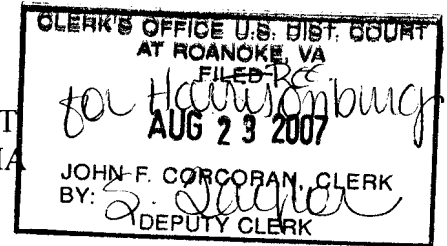 CLERK'S OFFICE U.S. DIST. COURT
AT ROANOKE, VA
FILED
for Harrisonburg
T
AUG 23 2007
IA
JOHN F. CORCORAN, CLERK
BY:
DEPUTY CLERK